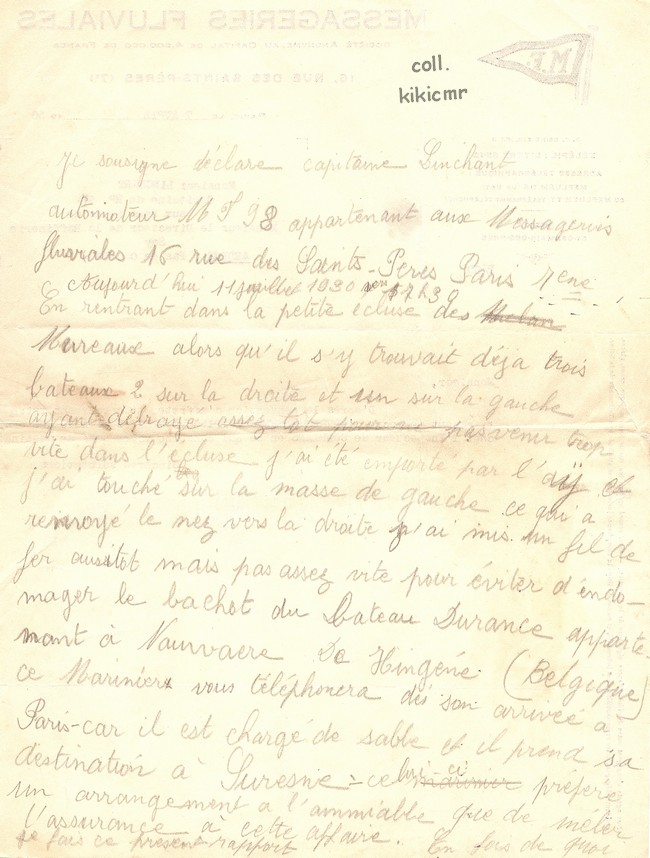 MESSAGERIES FLUVIALES
SOCIÉTÉ ANONYME AU CAPITAL DE 6.000.000 DE FRANCS
16, RUE DES SAINTS-PÈRES (7e)
M.F.
coll.
kikicmr
Je sousigne déclare capitaine Linchant
automateur M F 98 appartenant aux Messageries
fluviales 16 rue des Saints-Peres Paris 7eme
Aujourd'hui 11 juillet 1930 vers 17h30
En rentrant dans la petite écluse des Melan
Mureaux alors qu'il s'y trouvait déja trois
bateaux 2 sur la droite et un sur la gauche
ayant défrayé assez tôt pour ne pas venir trop
vite dans l'écluse j'ai été emporté par l'
j'ai touché sur la masse de gauche ce qui a
renvoyé le nez vers la droite j'ai mis un fil de
fer aussitot mais pas assez vite pour éviter d'endo-
mager le bachot du bateau Durance apparte-
nant à Vauvaere De Hingené (Belgique)
ce Marinier vous téléphonera dés son arrivée a
Paris-car il est chargé de sable et il prend sa
destination à Suresne - celui ci marinier préfere
un arrangement a l'ammiable que de méter
l'assurance à cette affaire. En fois de quoi
je fais ce présent rapport